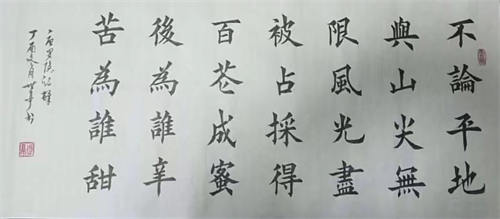 不論平地
與山尖無
限風光盡
被占採得
百花成蜜
後為誰辛
苦為誰甜
唐罗隐诗蜂
丁酉月书